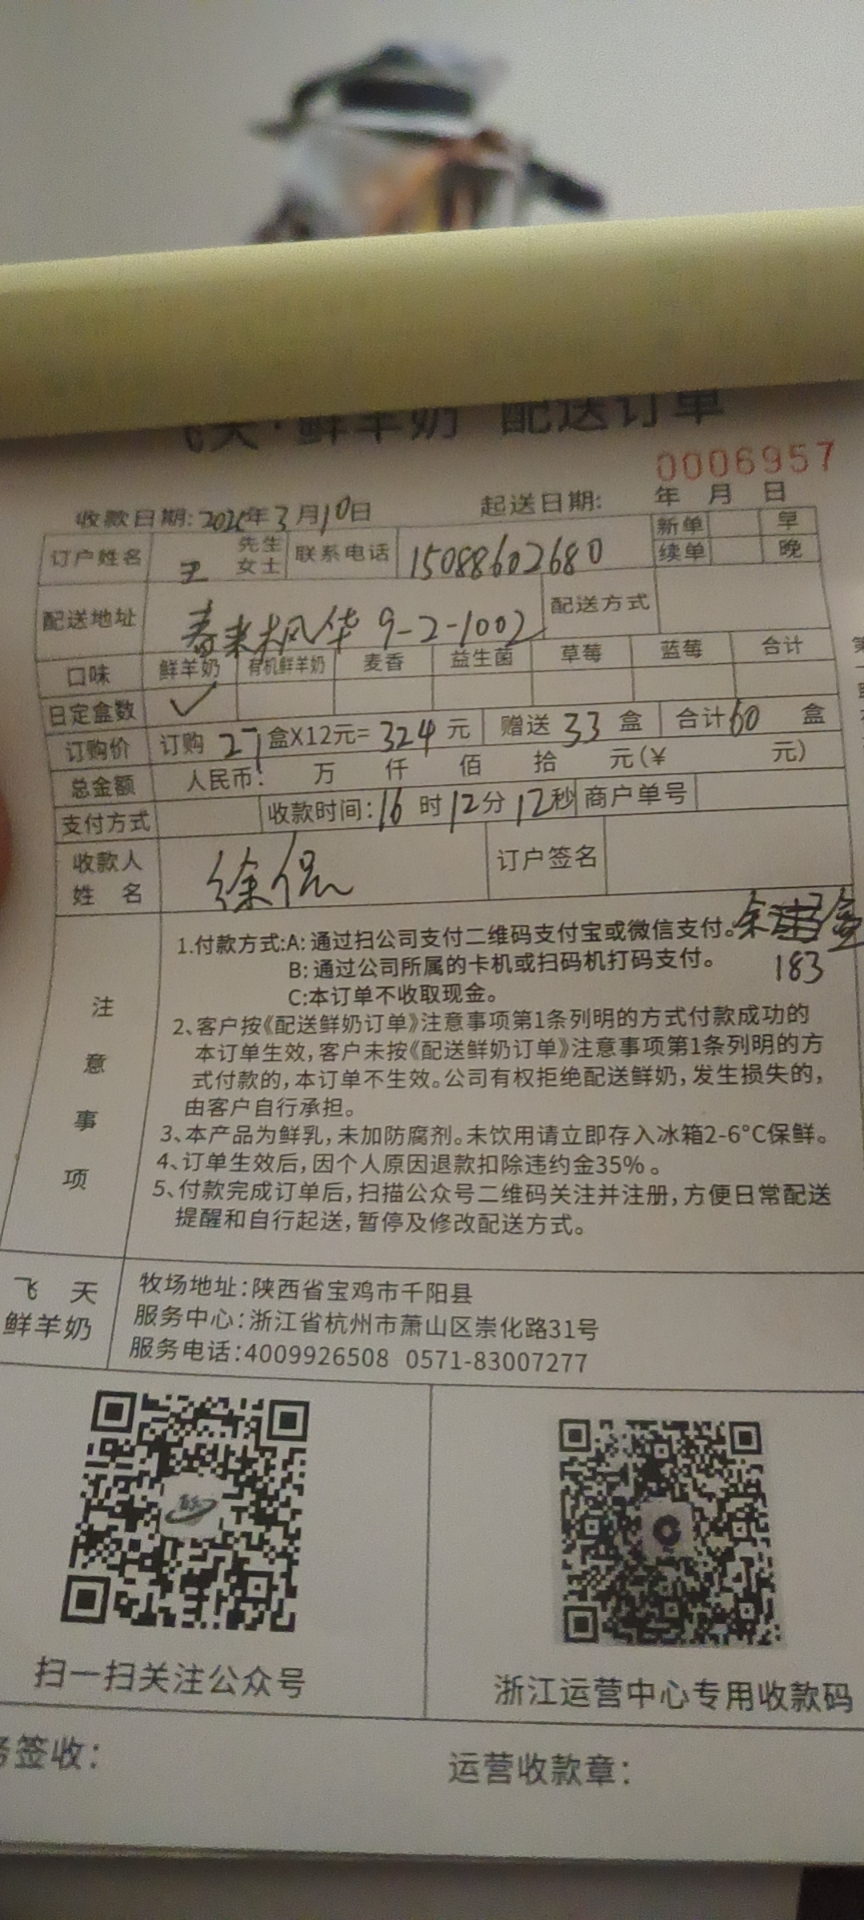 飞天·鲜羊奶 配送订单
0006957
收款日期: 年3月10日 起送日期: 年 月 日
订户姓名 王 先生 女士 联系电话 15088602680 新单 早 续单 晚
配送地址 春来枫华 9-2-1002 配送方式
口味 鲜羊奶 有机鲜羊奶 麦香 益生菌 草莓 蓝莓 合计
日定盒数 ✓
订购价 订购 27 盒X12元= 324 元 赠送 33 盒 合计 60 盒
总金额 人民币: 万 仟 佰 拾 元(¥ 元)
支付方式 收款时间: 16 时 12 分 12 秒 商户单号
收款人姓名 徐侃 订户签名
注意事项
1.付款方式:A: 通过扫公司支付二维码支付宝或微信支付。
B: 通过公司所属的卡机或扫码机打码支付。 183
C:本订单不收取现金。
2、客户按《配送鲜奶订单》注意事项第1条列明的方式付款成功的
本订单生效,客户未按《配送鲜奶订单》注意事项第1条列明的方
式付款的,本订单不生效。公司有权拒绝配送鲜奶,发生损失的,
由客户自行承担。
3、本产品为鲜乳,未加防腐剂。未饮用请立即存入冰箱2-6°C保鲜。
4、订单生效后,因个人原因退款扣除违约金35%。
5、付款完成订单后,扫描公众号二维码关注并注册,方便日常配送
提醒和自行起送,暂停及修改配送方式。
飞天鲜羊奶
牧场地址:陕西省宝鸡市千阳县
服务中心:浙江省杭州市萧山区崇化路31号
服务电话:4009926508 0571-83007277
扫一扫关注公众号 浙江运营中心专用收款码
签收: 运营收款章: